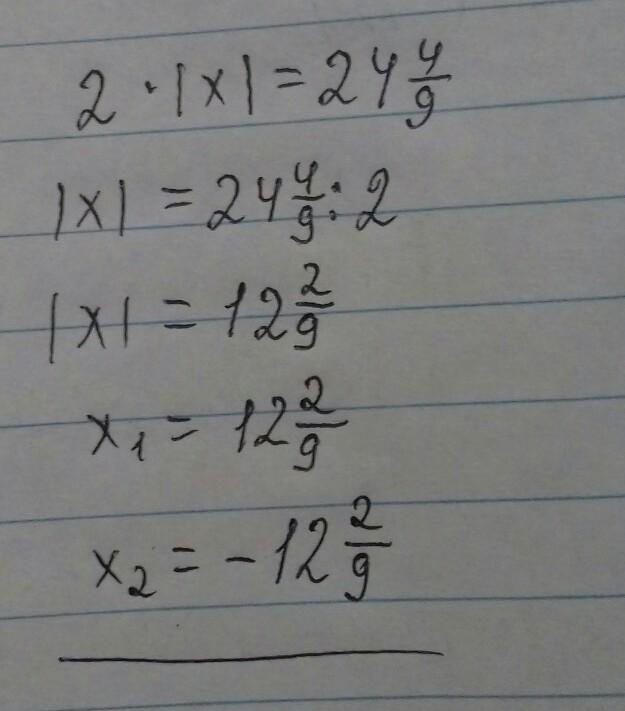 2 · |x| = 24 4/9
|x| = 24 4/9 : 2
|x| = 12 2/9
x₁ = 12 2/9
x₂ = -12 2/9